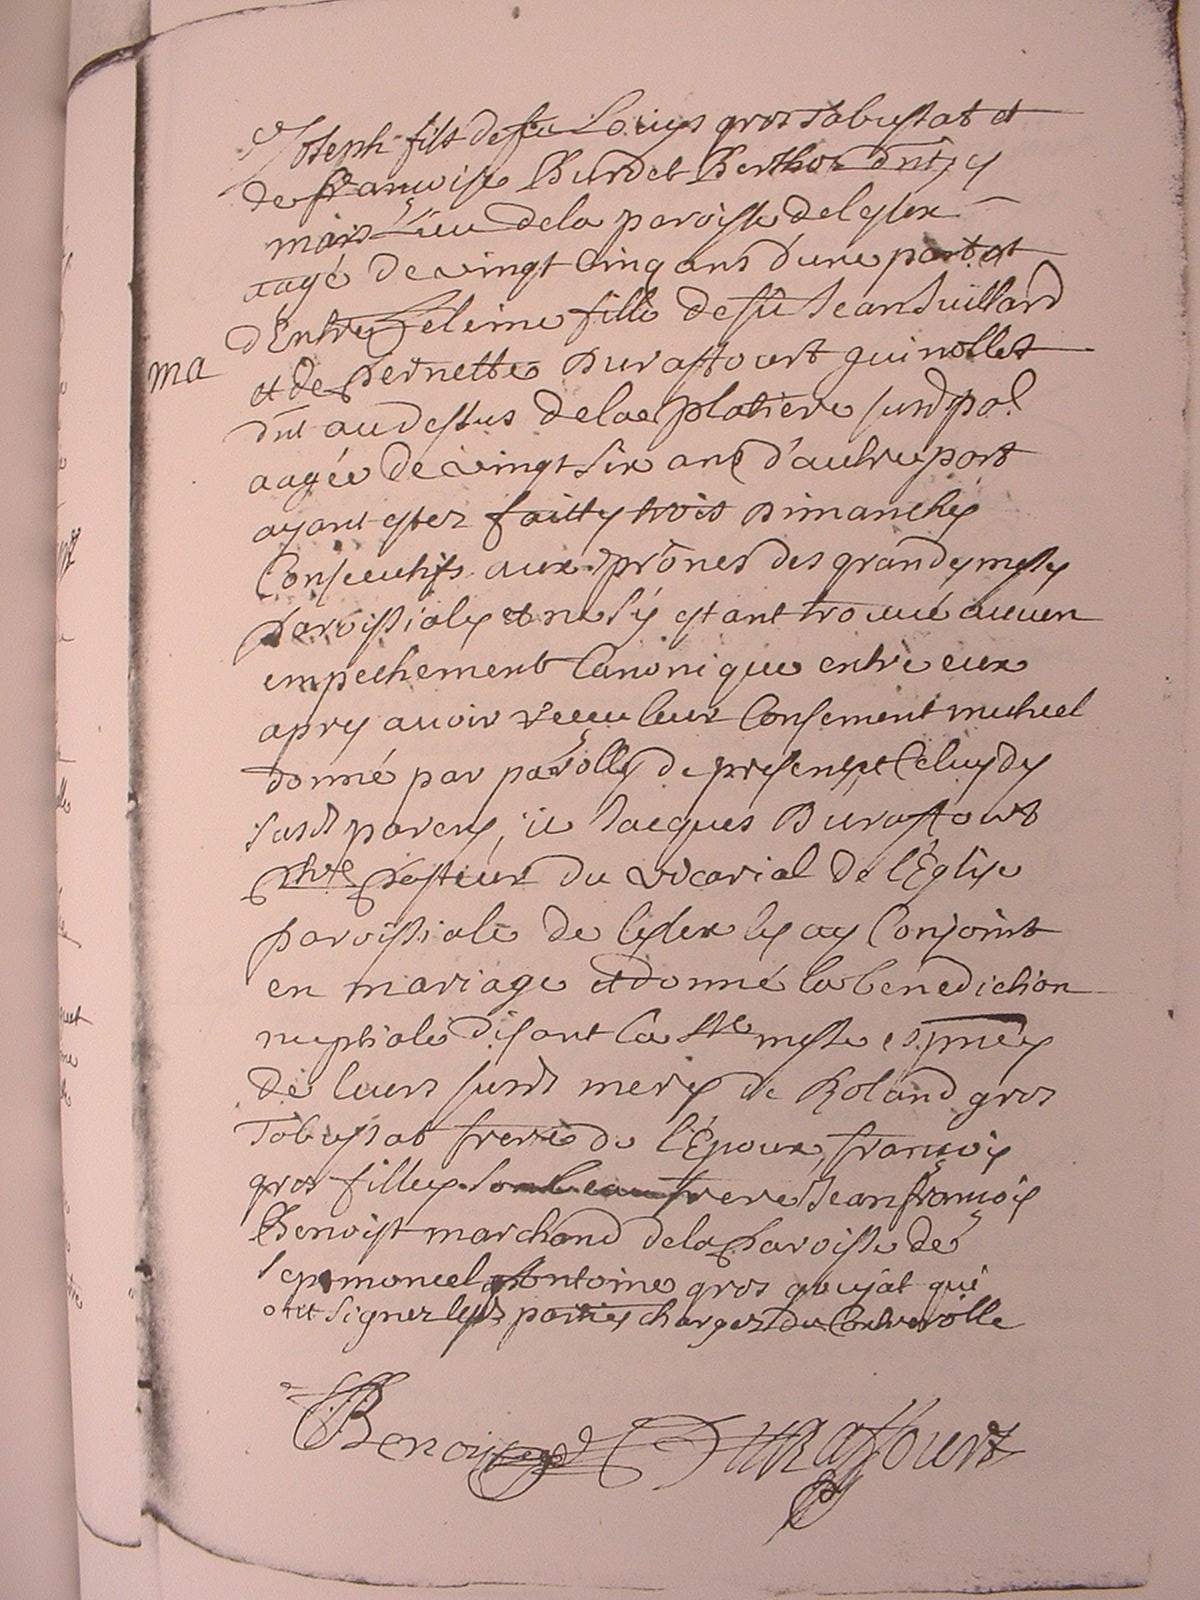 Joseph fils de fu Louys gros tabussat et
de françoise Burdet Berthod dnt
lieu de la paroisse de lesser
aagé de vingt cinq ans d'une part et
d'Entre fille de fû Jean Juillard
ma
et de Pernette Duraffourt guinollet
dnt au dessus de la platiere surd
aagée de vingt six ans d'autre part
ayant estez faitty trois Dimanchés
Consecutifs aux prônes des grandes messes
Paroissiales et ne s'y estant trouué aucun
empechement Canonique entre eux
apres auoir receu leur Consement mutuel
donné par parolles de present, et Celuy des
susds parens, ie Jacques Duraffourt
Pbtre du vicarial de l'Église
paroissiale de lesser les ay Conjoint
en mariage et donné la benediction
nuptiale disant la Ste messe es pnces
de leurs susds meres de Roland gros
Tabussat frere de l'Epoux, françois
gros fillex son beau frere Jean françois
Benoist marchand de la Paroisse de
Septmoncel Antoine gros goujat qui
ont signez parties chargez du Controolle
Benoist Duraffourt